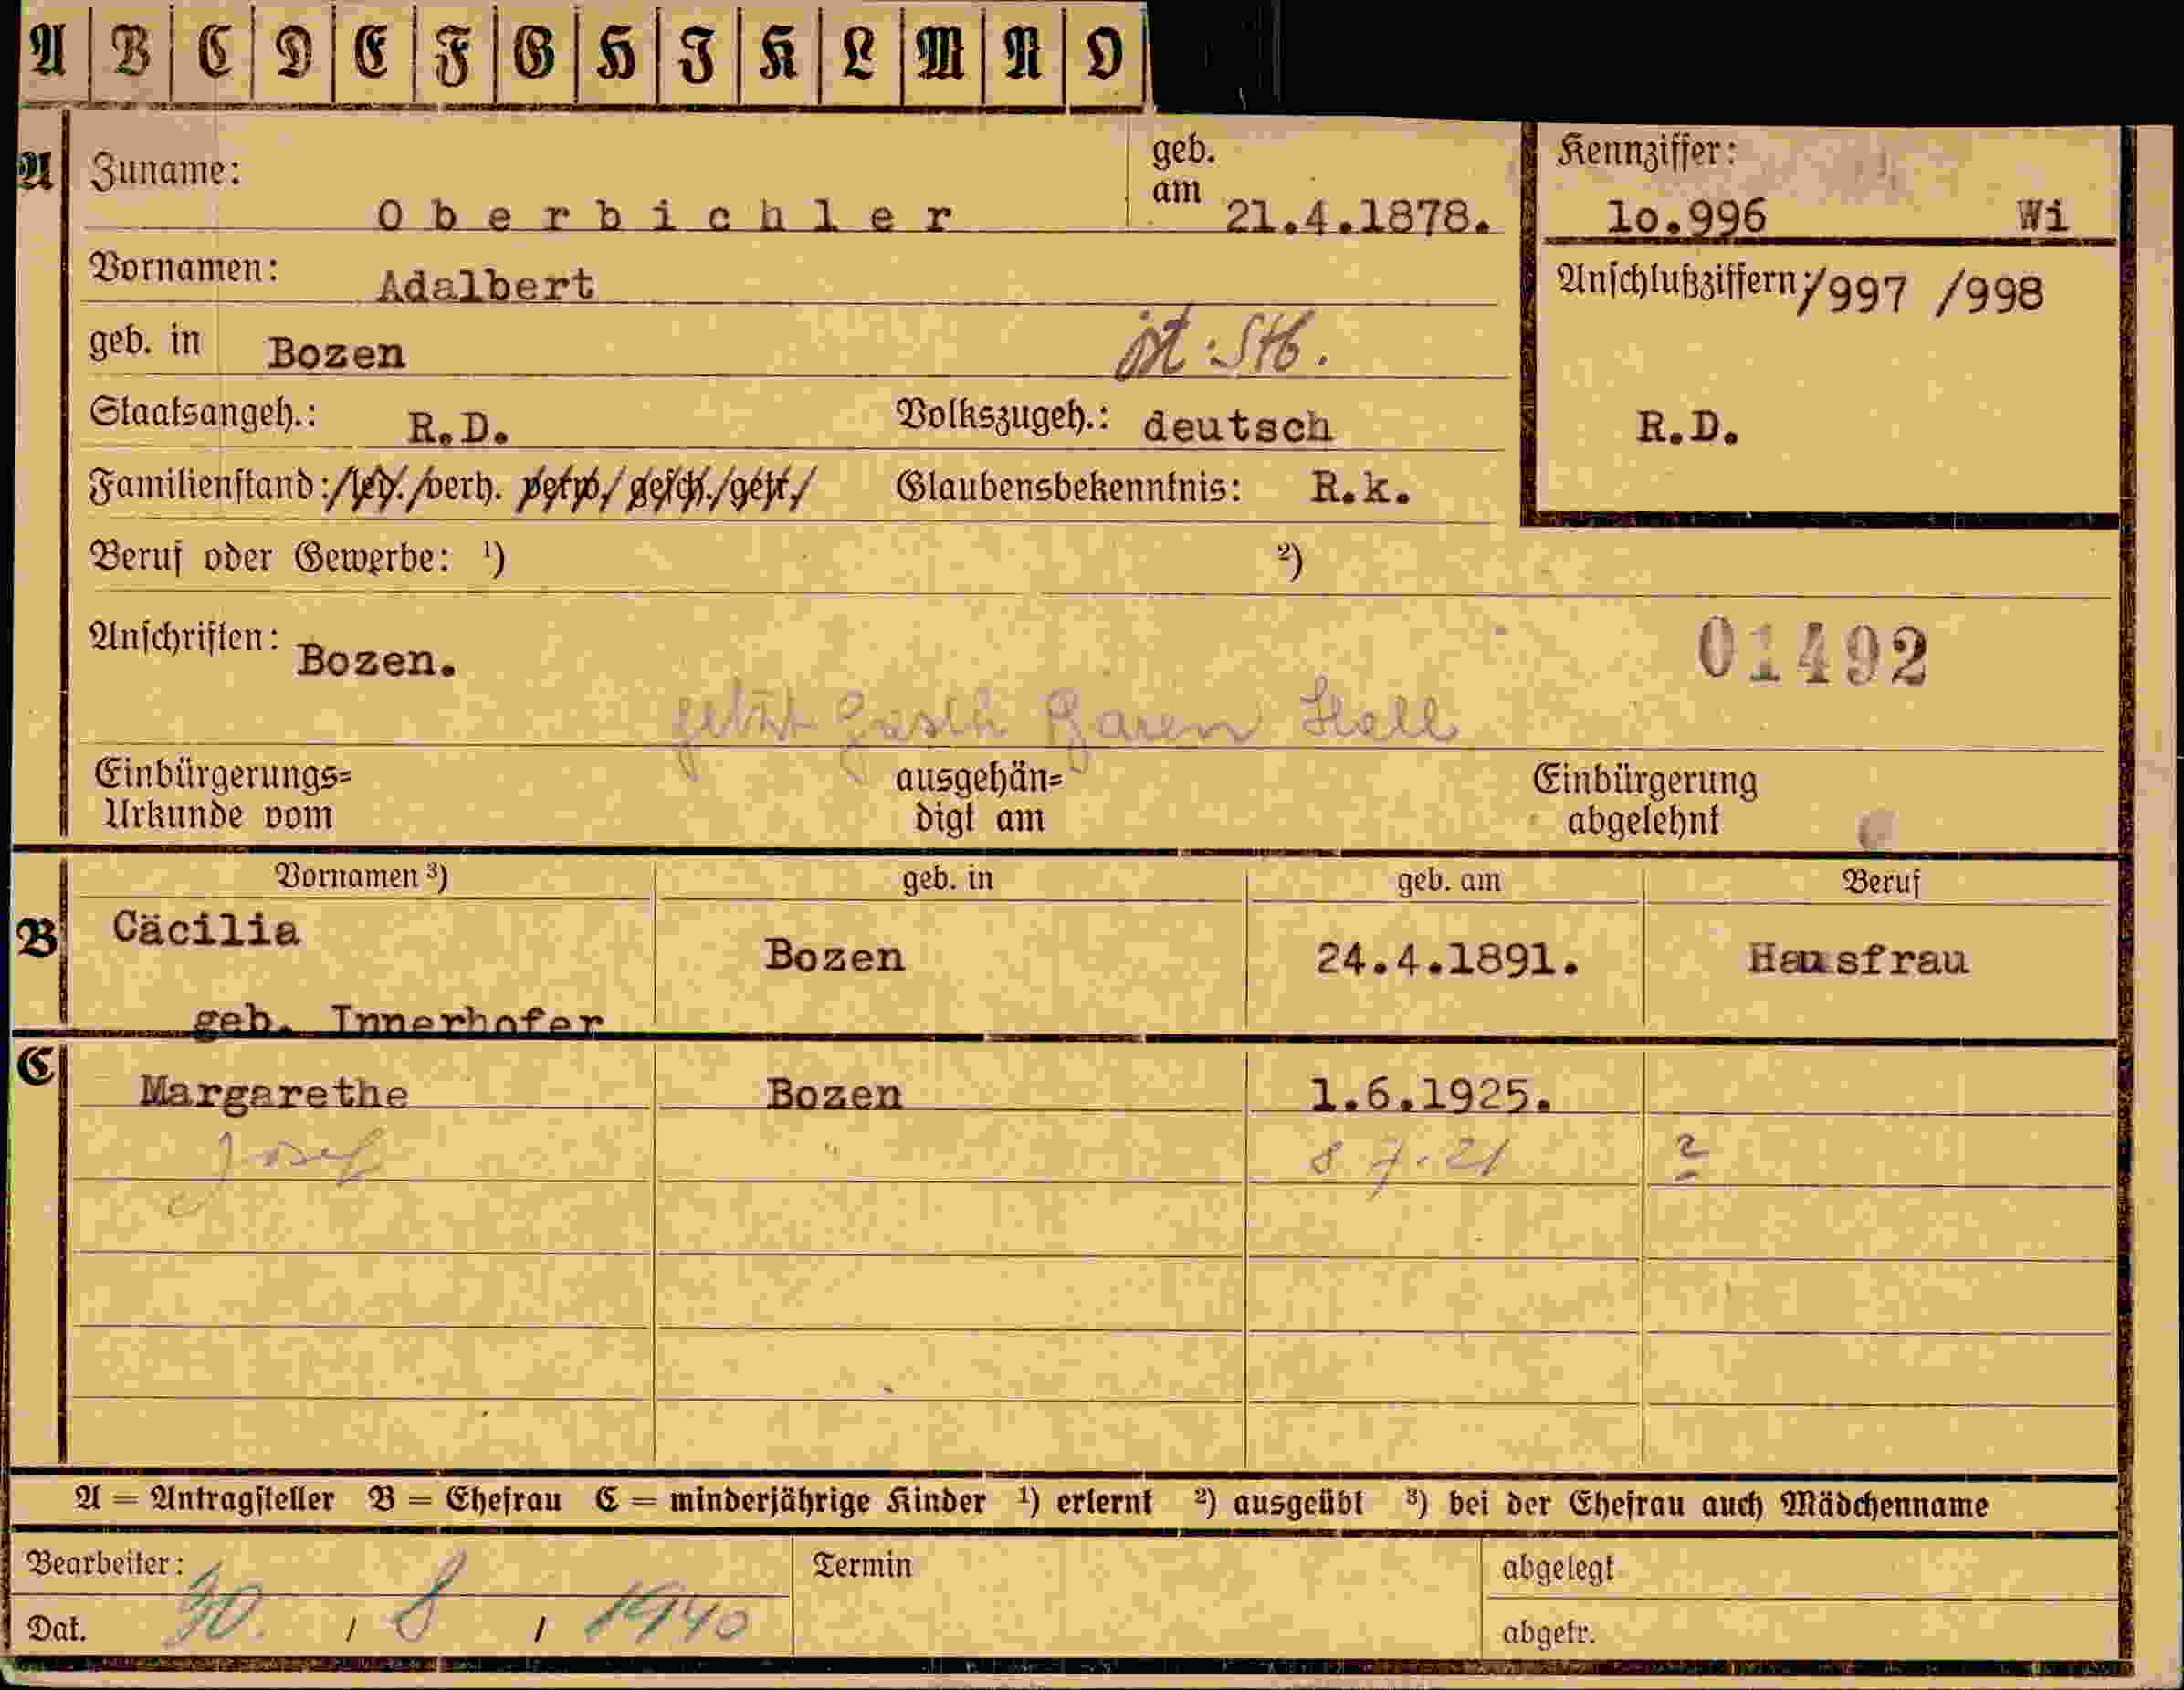 A B C D E F G H I K L M N O
A Zuname: Oberbichler geb. am 21.4.1878.
Kennziffer: 1o.996 Wi
Vornamen: Adalbert
Anschlußziffern: /997 /998
geb. in Bozen
Staatsangeh.: R.D. Volkszugeh.: deutsch
R.D.
Familienstand: /led./verh. verw./gesch./getr./ Glaubensbekenntnis: R.k.
Beruf oder Gewerbe: ¹) ²)
Anschriften: Bozen.
01492
Hall
Einbürgerungs=
Urkunde vom
ausgehän=
digt am
Einbürgerung
abgelehnt
Vornamen ³) geb. in geb. am Beruf
B Cäcilia Bozen 24.4.1891. Hausfrau
geb. Innerhofer
C Margarethe Bozen 1.6.1925.
Josef " 8 7. 21 ?
A = Antragsteller B = Ehefrau C = minderjährige Kinder ¹) erlernt ²) ausgeübt ³) bei der Ehefrau auch Mädchenname
Bearbeiter: Termin abgelegt
Dat. 30. / 8 / 1940 abgetr.